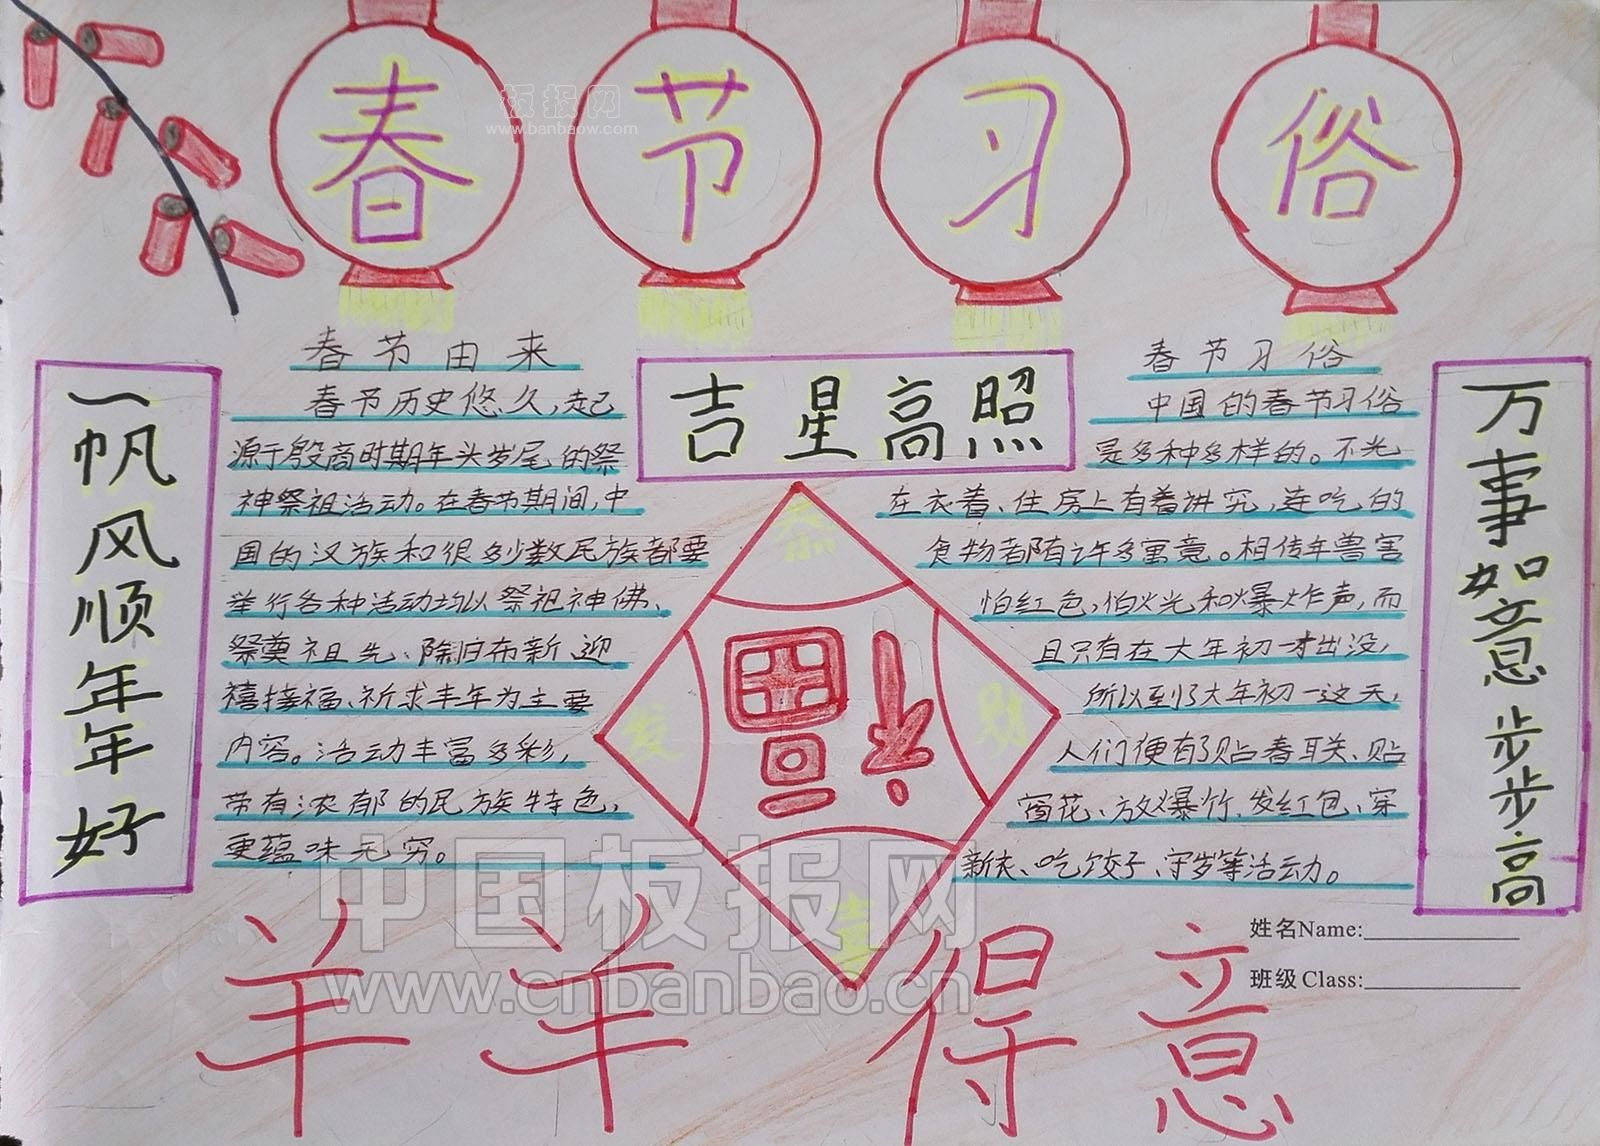 春节习俗
板报网
www.banbaow.com
一帆风顺年年好
春节由来
春节历史悠久,起
源于殷商时期年头岁尾的祭
神祭祖活动。在春节期间,中
国的汉族和很多少数民族都要
举行各种活动均以祭祀神佛、
祭奠祖先、除旧布新迎
禧接福、祈求丰年为主要
内容。活动丰富多彩,
带有浓郁的民族特色,
更蕴味无穷。
吉星高照
恭
发
财
吉
福
春节习俗
中国的春节习俗
是多种多样的。不光
在衣着、住房上有着讲究,连吃的
食物都有许多寓意。相传年兽害
怕红色,怕火光和爆炸声,而
且只有在大年初一才出没,
所以到了大年初一这天,
人们便有了贴春联、贴
窗花、放爆竹、发红包、穿
新衣、吃饺子、守岁等活动。
万事如意步步高
中国板报网
www.cnbanbao.cn
羊羊得意
姓名Name:
班级Class: